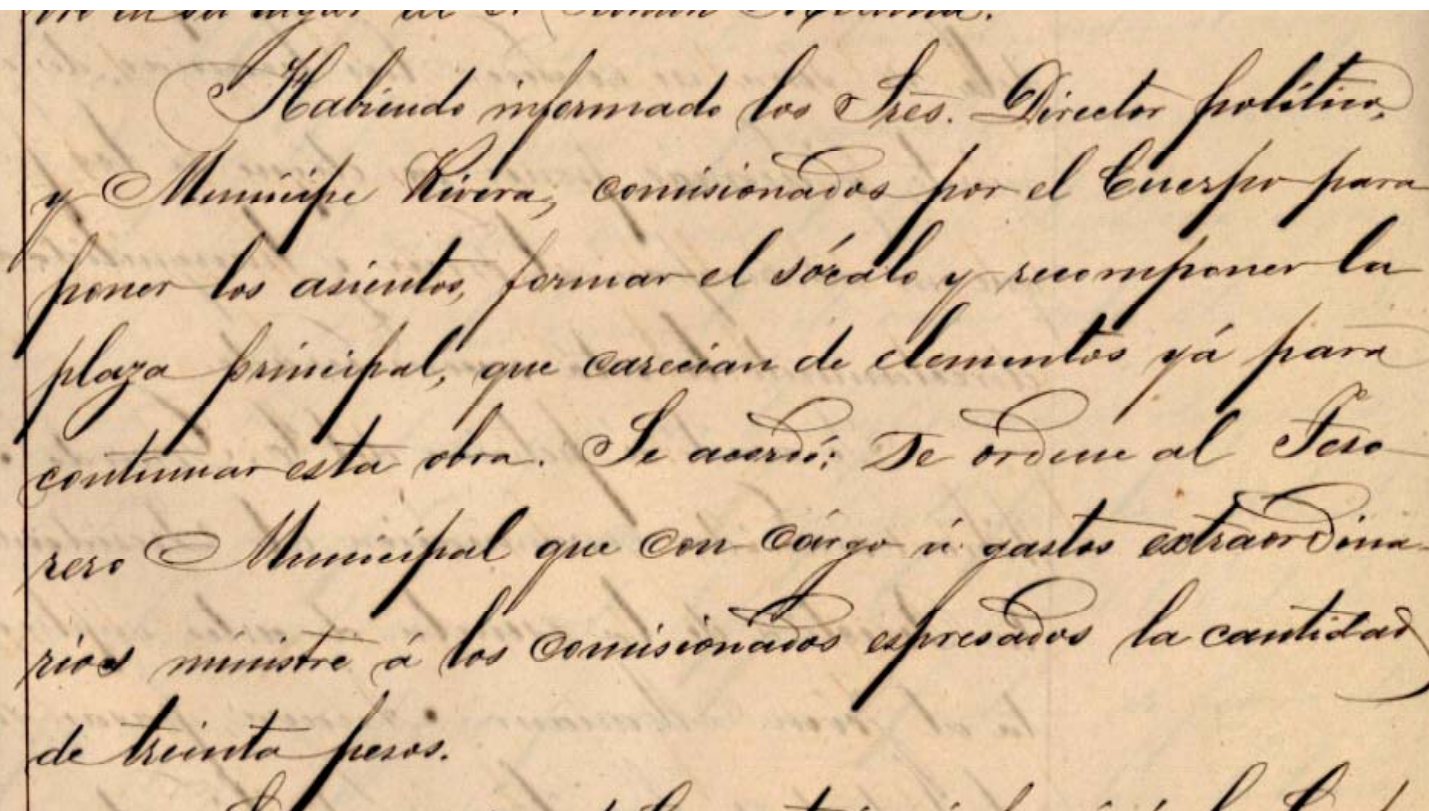 Habiendo informado los Sres. Director político,
y Munícipe Rivera, comisionados por el Cuerpo para
poner los asientos, formar el sócalo y recomponer la
plaza principal, que carecian de elementos yá para
continuar esta obra. Se acordó: Se ordene al Teso
rero Municipal que con cárgo á gastos extraordina-
rios ministre á los comisionados espresados la cantidad
de treinta pesos.